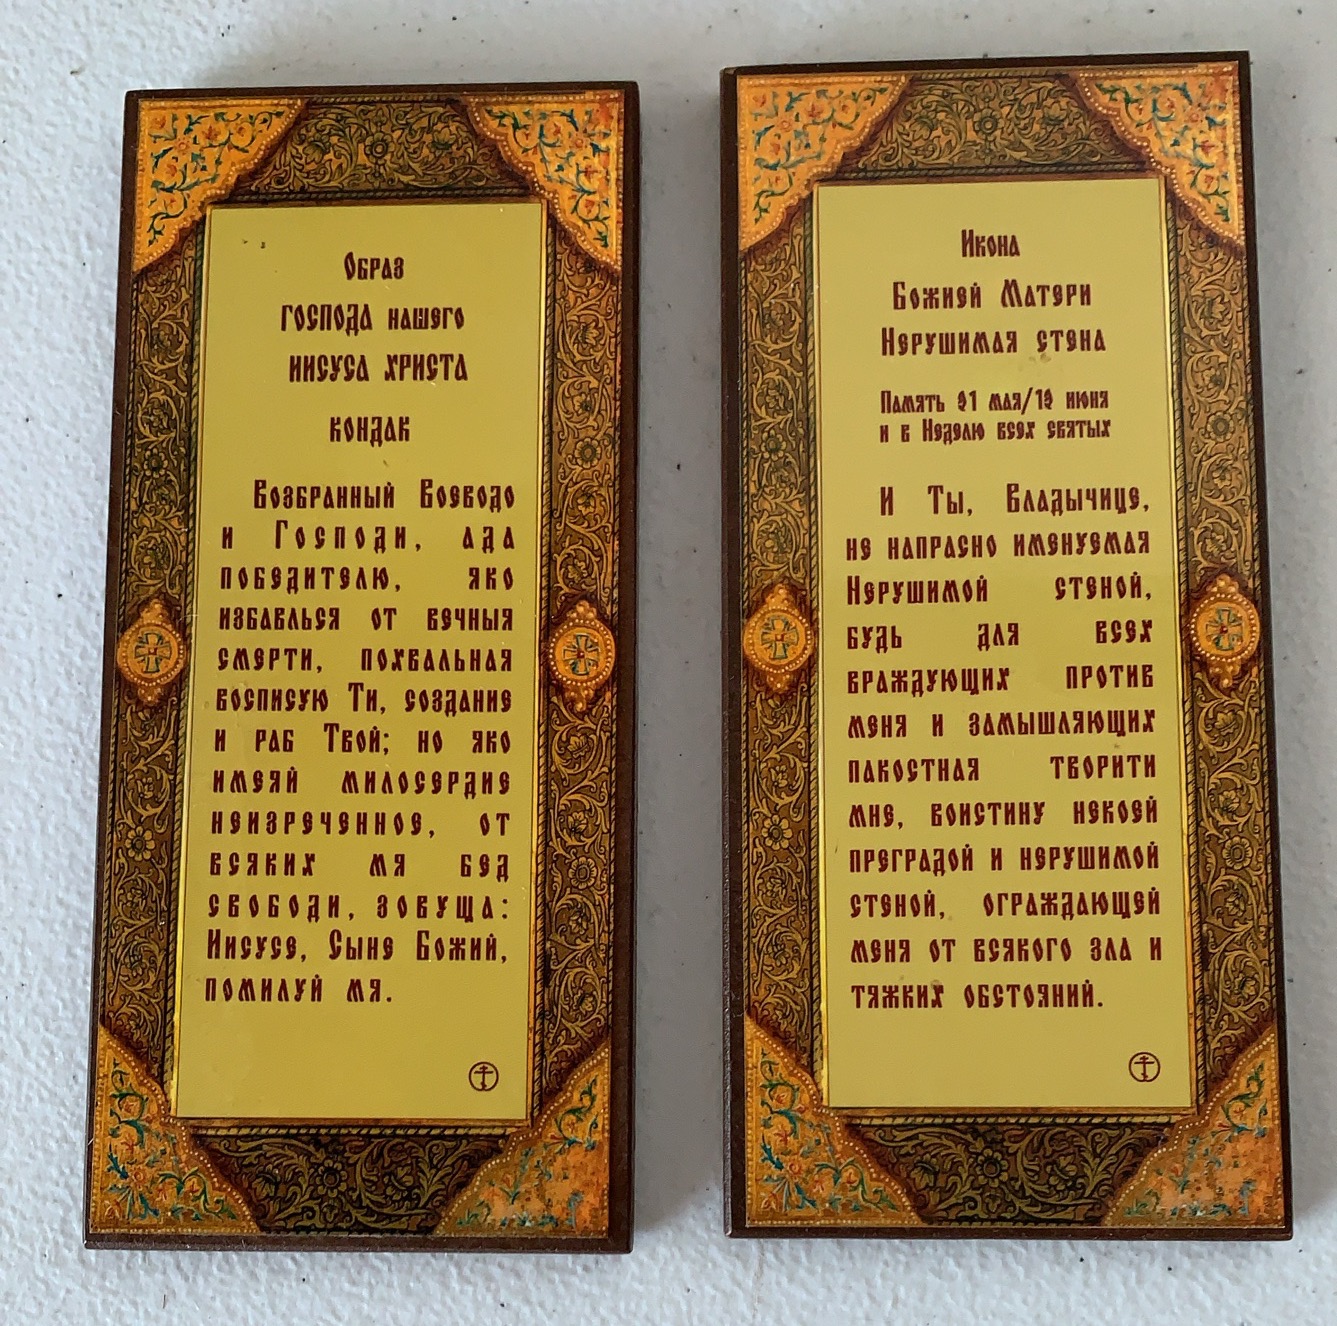 Образ
ГОСПОДА нашего
ИИСУСА ХРИСТА
КОНДАК
Возбранный Воеводо
и Господи, ада
победителю, яко
избавлься от вечныя
смерти, похвальная
восписую Ти, создание
и раб Твой; но яко
имеяй милосердие
неизреченное, от
всяких мя бед
свободи, зовуща:
Иисусе, Сыне Божий,
помилуй мя.
Икона
Божией Матери
Нерушимая стена
Память 31 мая/13 июня
и в Неделю всех святых
И Ты, Владычице,
не напрасно именуемая
Нерушимой стеной,
будь для всех
враждующих против
меня и замышляющих
пакостная творити
мне, воистину некоей
преградой и нерушимой
стеной, ограждающей
меня от всякого зла и
тяжких обстояний.